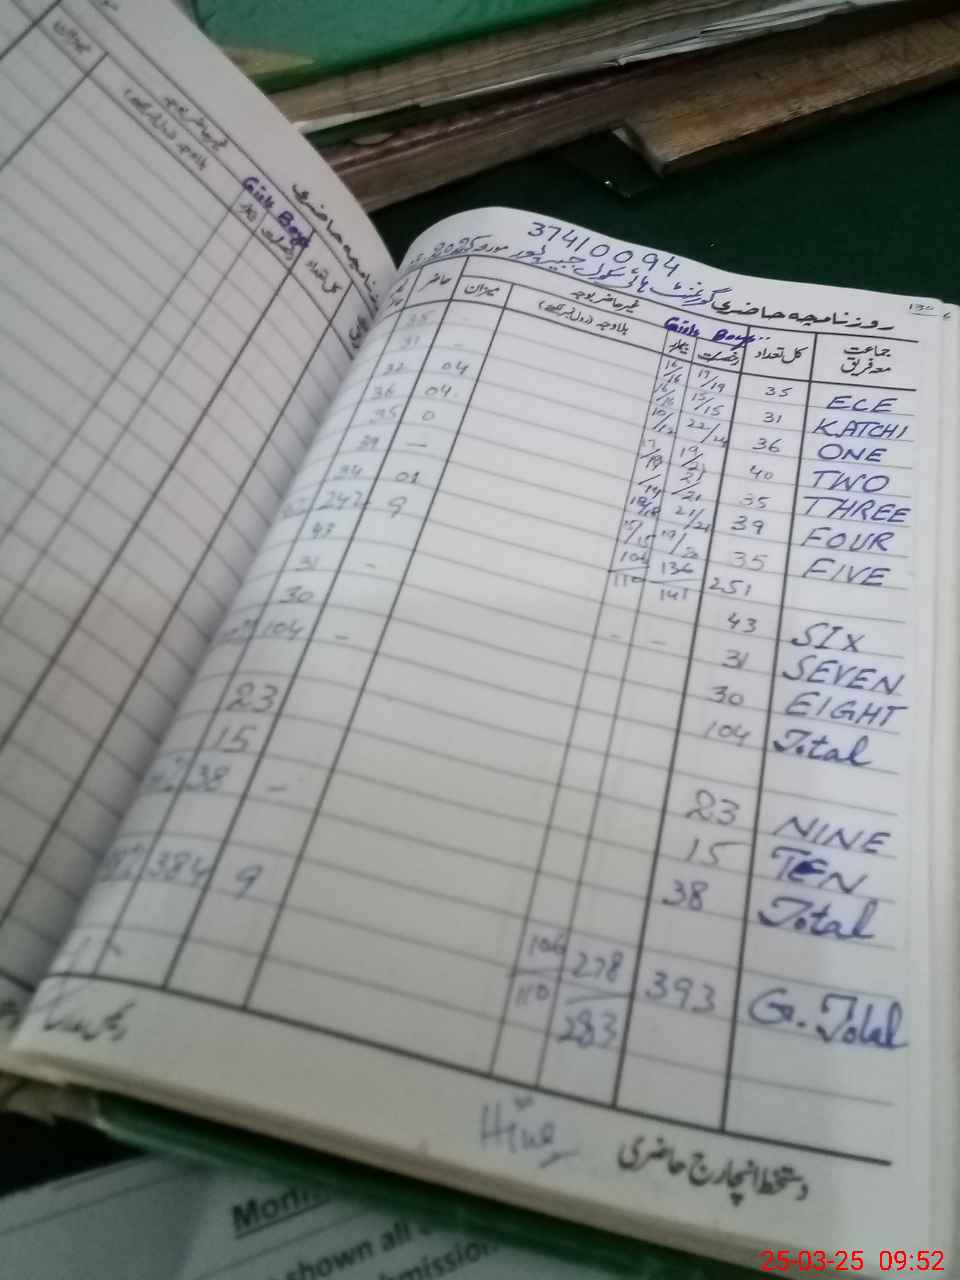 37410094
روزنامچہ حاضری گورنمنٹ ہائی سکول
جماعت معہ فریق کل تعداد Girls Boys رخصت بیمار غیر حاضر بوجہ بلاوجہ میزان حاضر
ECE 35 17/19 16/16 - 35
KATCHI 31 15/15 16/16 - 31
ONE 36 22/24 10/12 04 32
TWO 40 19/21 17/19 04 36
THREE 35 21/21 /14 0 35
FOUR 39 21/21 18/18 — 39
FIVE 35 19/20 15/15 01 34
251 136/141 106/110 9 242
SIX 43 - - 43
SEVEN 31 - 31
EIGHT 30 30
Total 104 - 104
NINE 23 23
TEN 15 15
Total 38 - 38
G. Total 393 278/283 106/110 9 384
دستخط انچارج حاضری
Girls Boys
کل تعداد
روزنامچہ حاضری
غیر حاضر بوجہ
میزان
shown all
25-03-25 09:52